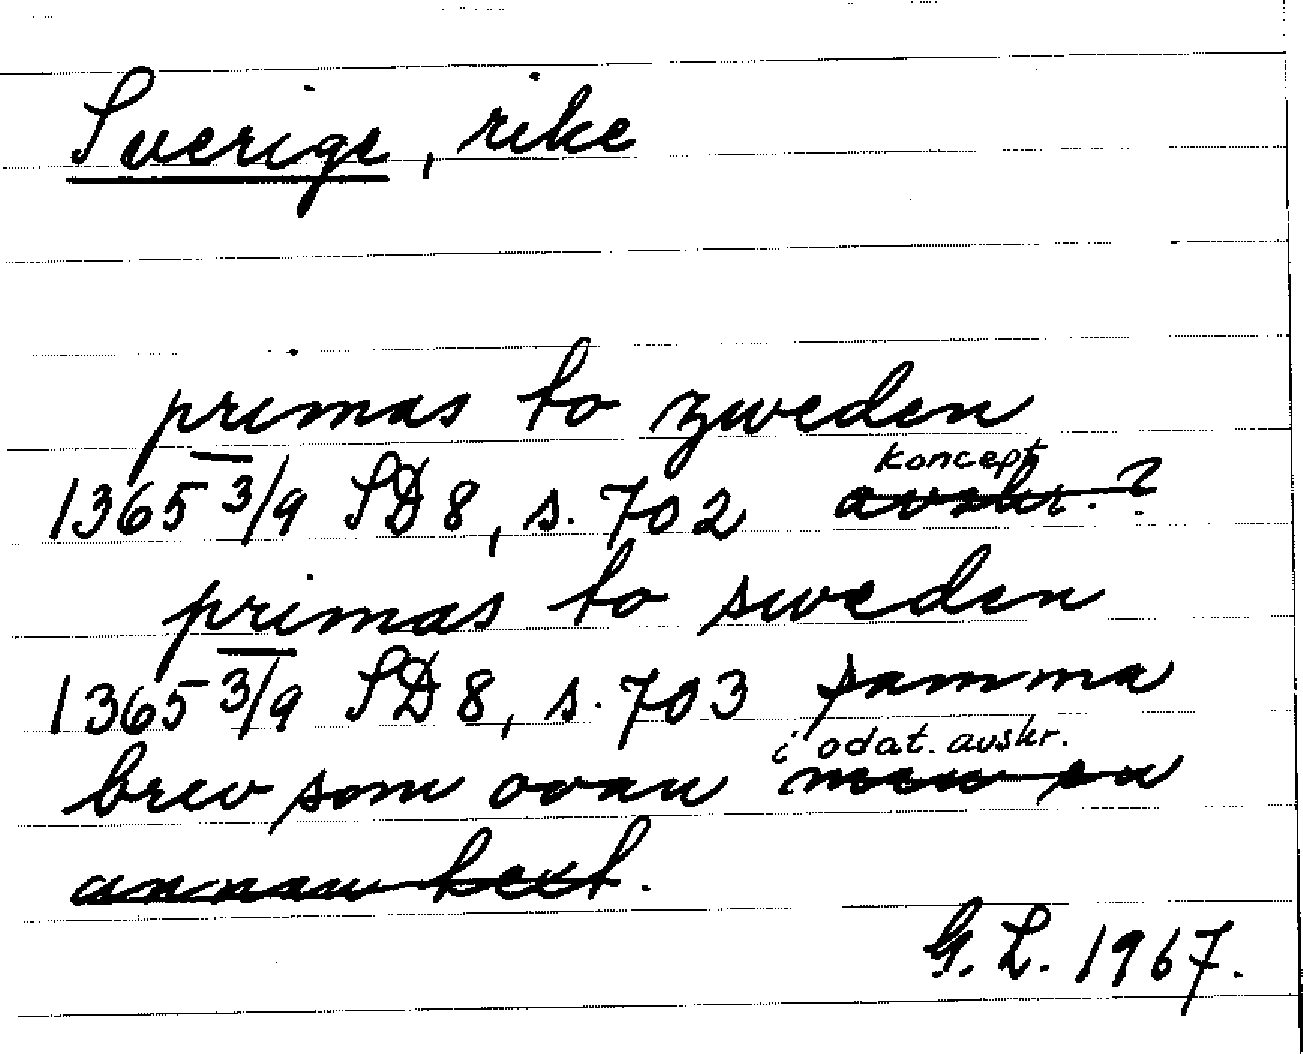 Sverige, rike
primas to zweden
koncept
1365 3/9 SD 8, s. 702 avskr. ?
primas to sweden
1365 3/9 SD 8, s. 703 samma
i odat. avskr.
brev som ovan men en
annan text.
G. L. 1967.